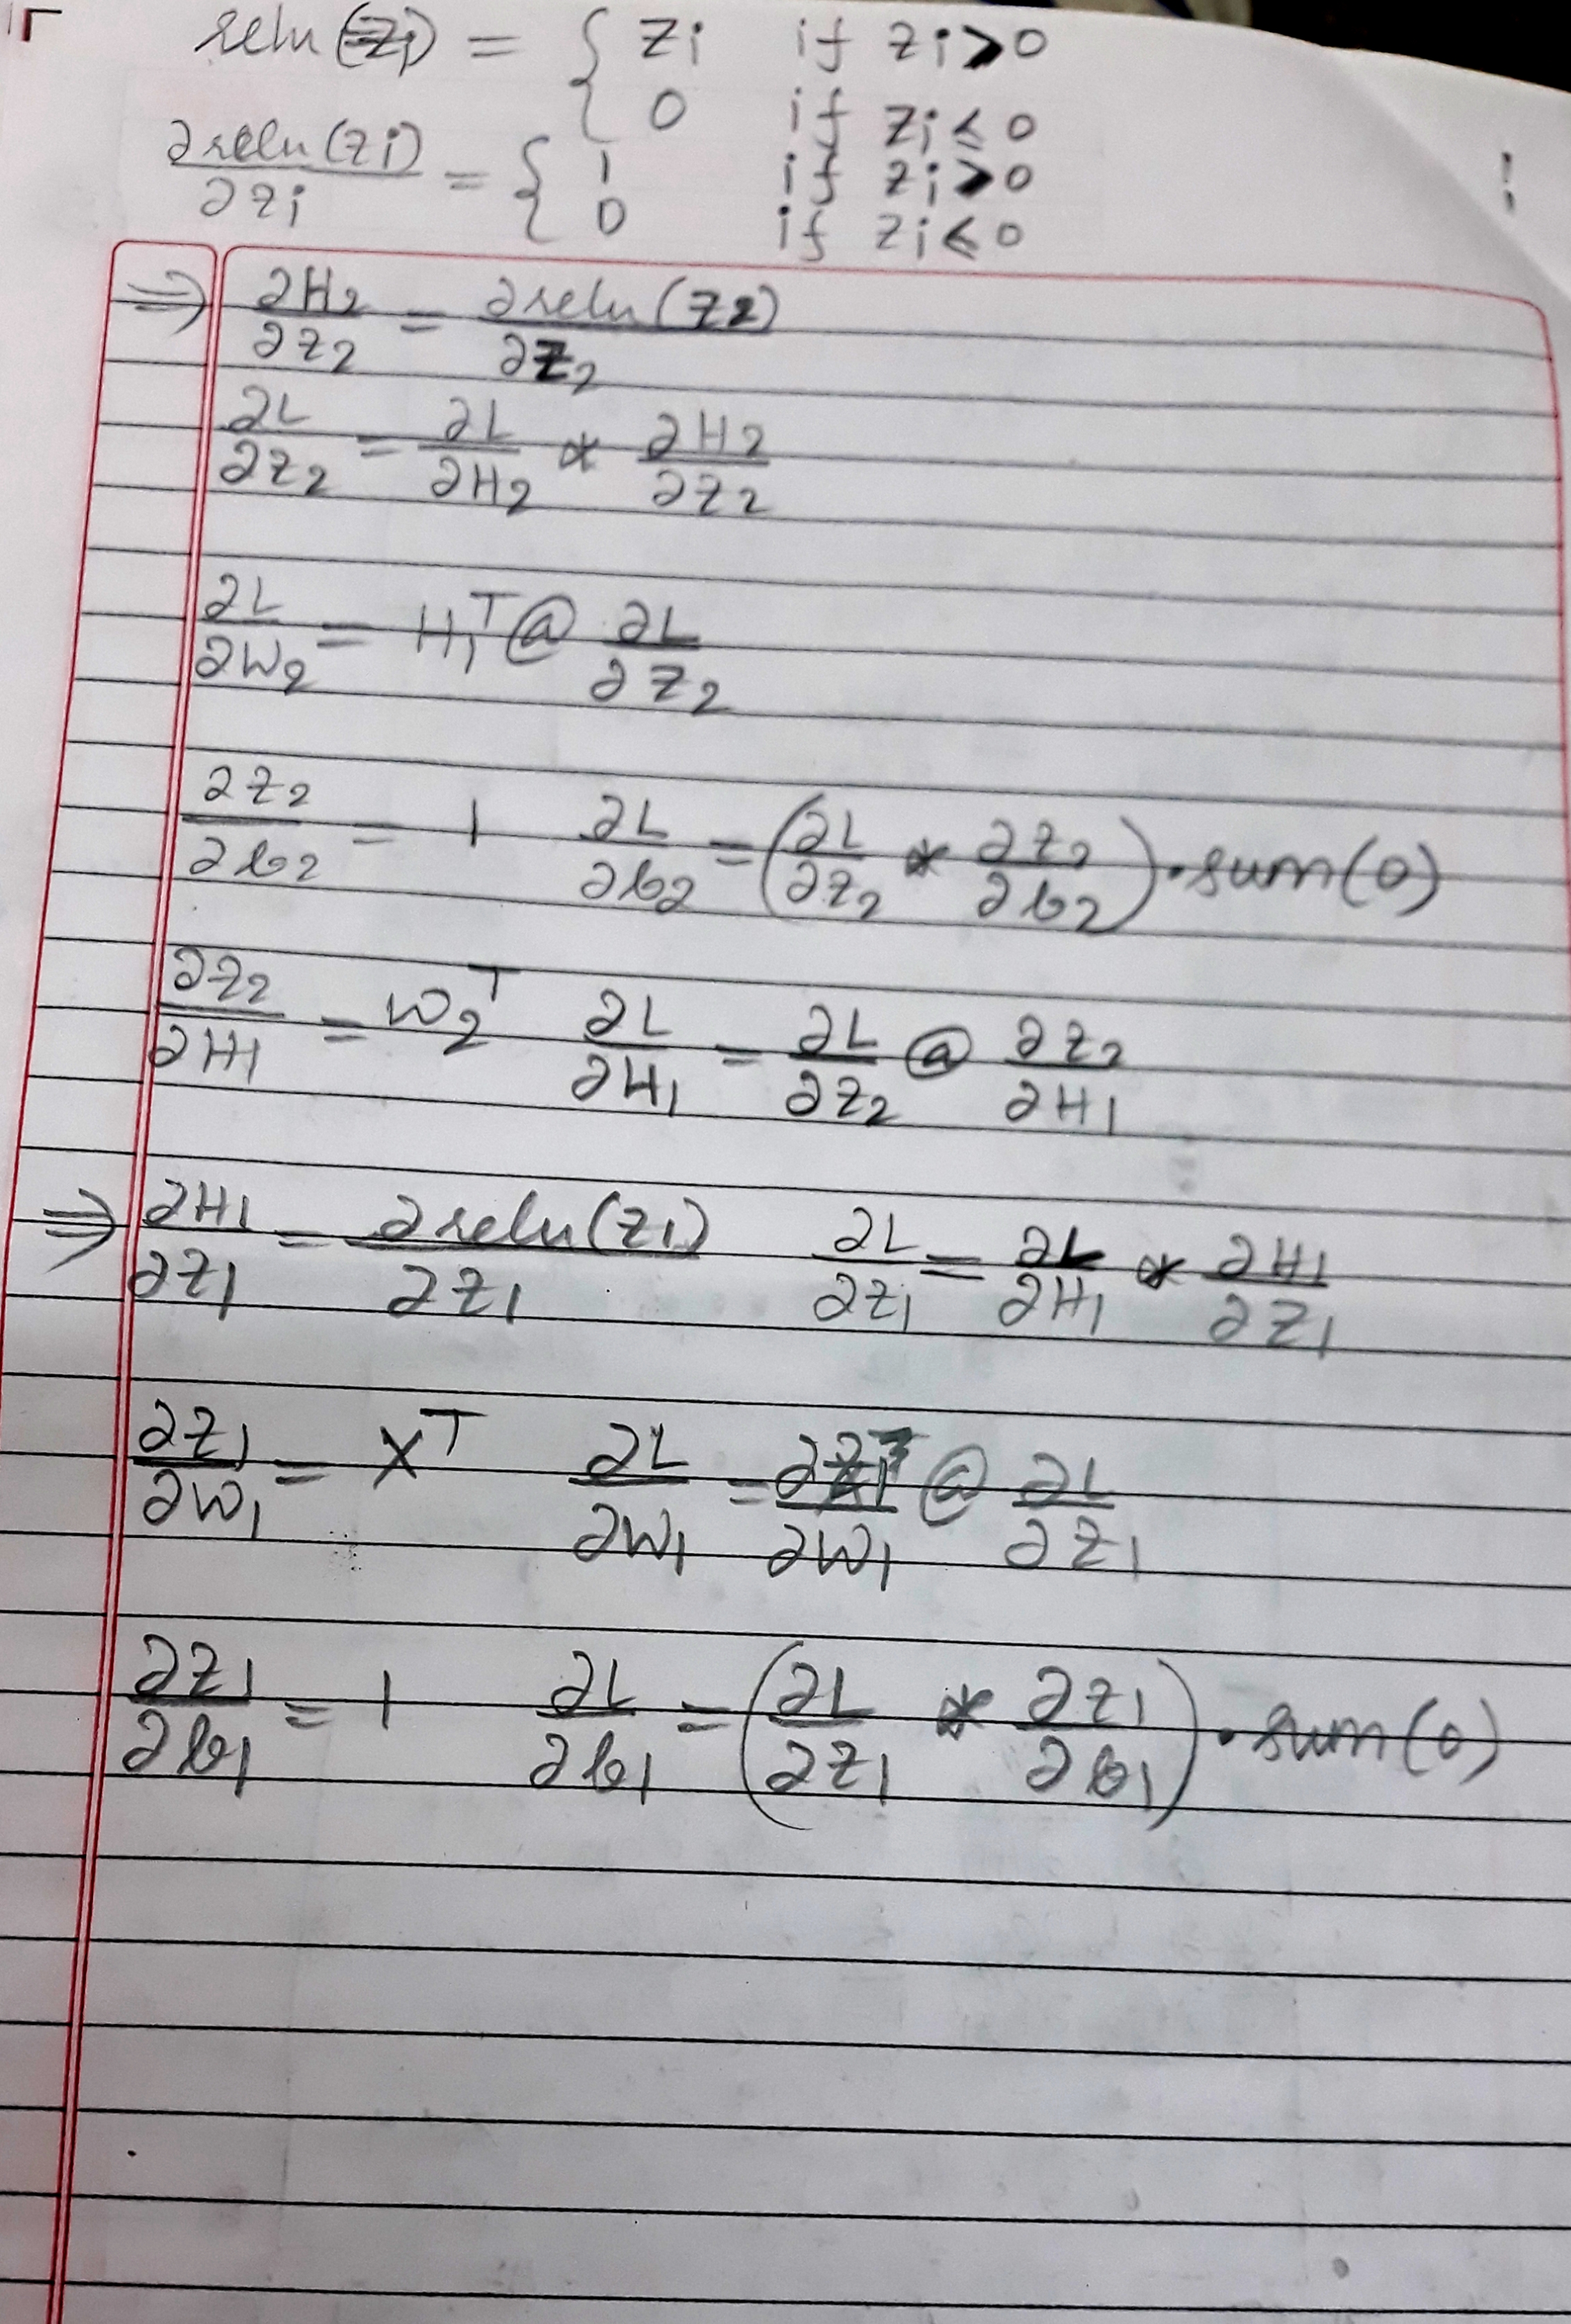 relu(zi) = { zi if zi > 0
0 if zi ≤ 0
∂relu(zi)/∂zi = { 1 if zi > 0
0 if zi ≤ 0
⇒ ∂H2/∂z2 = ∂relu(z2)/∂z2
∂L/∂z2 = ∂L/∂H2 * ∂H2/∂z2
∂L/∂W2 = H1^T @ ∂L/∂z2
∂z2/∂b2 = 1 ∂L/∂b2 = (∂L/∂z2 * ∂z2/∂b2).sum(0)
∂z2/∂H1 = W2^T ∂L/∂H1 = ∂L/∂z2 @ ∂z2/∂H1
⇒ ∂H1/∂z1 = ∂relu(z1)/∂z1 ∂L/∂z1 = ∂L/∂H1 * ∂H1/∂z1
∂z1/∂W1 = X^T ∂L/∂W1 = ∂z1/∂W1 @ ∂L/∂z1
∂z1/∂b1 = 1 ∂L/∂b1 = (∂L/∂z1 * ∂z1/∂b1).sum(0)